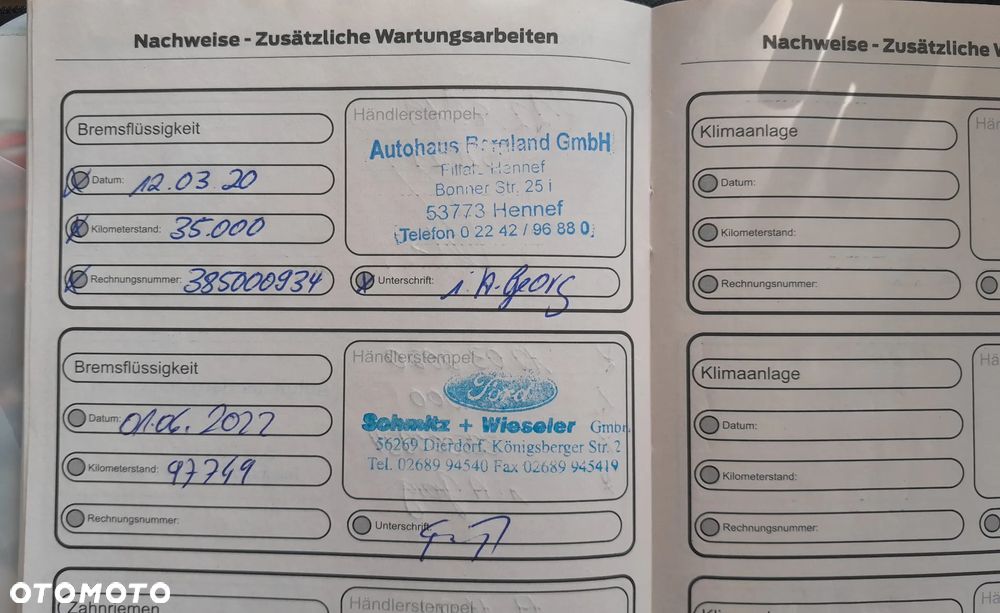 Nachweise - Zusätzliche Wartungsarbeiten
Bremsflüssigkeit
Datum: 12.03.20
Kilometerstand: 35.000
Rechnungsnummer: 385000934
Händlerstempel
Autohaus Bergland GmbH
Filiale Hennef
Bonner Str. 25 i
53773 Hennef
Telefon 0 22 42 / 96 88 0
Unterschrift: i.A. Georg
Bremsflüssigkeit
Datum: 01.06.2022
Kilometerstand: 97749
Rechnungsnummer:
Händlerstempel
Ford
Schmitz + Wieseler GmbH
56269 Dierdorf, Königsberger Str. 2
Tel. 02689 94540 Fax 02689 945419
Unterschrift:
Zahnriemen
Händlerstempel
Nachweise - Zusätzliche
Klimaanlage
Datum:
Kilometerstand:
Rechnungsnummer:
Klimaanlage
Datum:
Kilometerstand:
Rechnungsnummer:
OTOMOTO